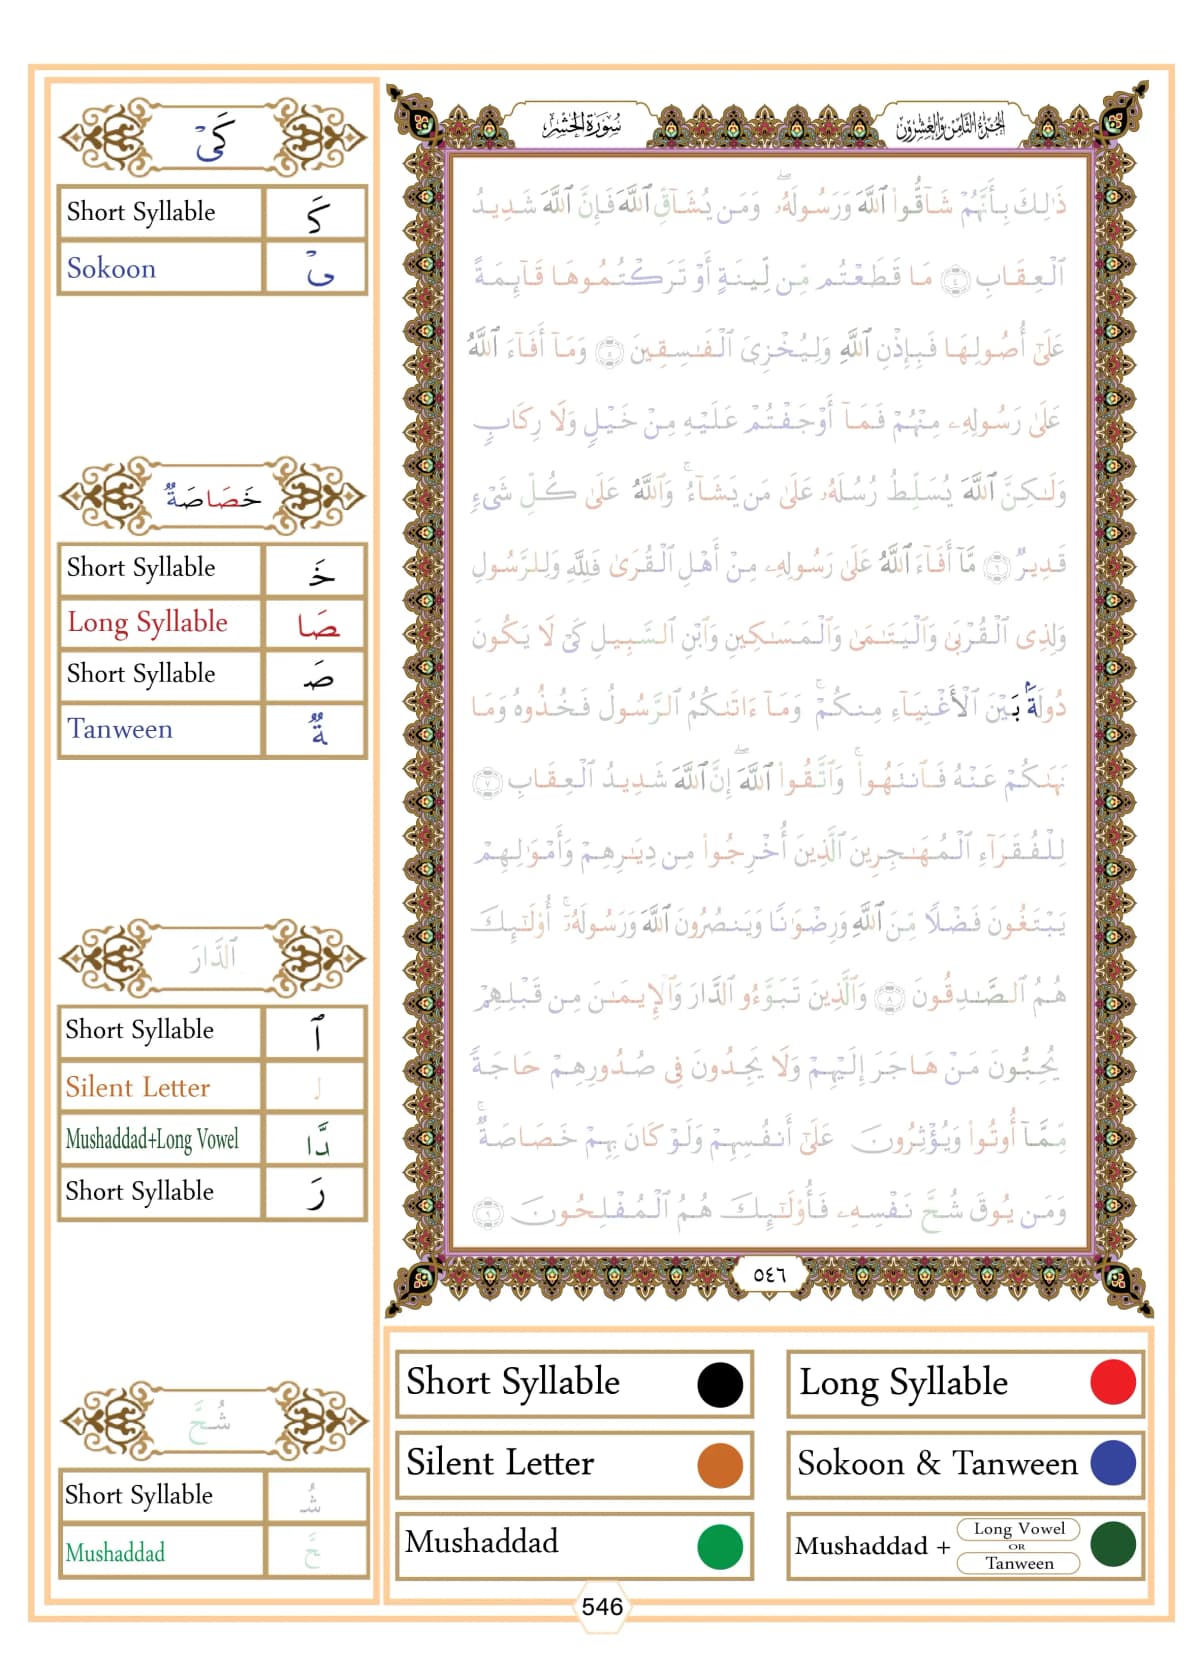 الجزء الثامن والعشرون
سورة الحشر
ذَٰلِكَ بِأَنَّهُمْ شَآقُّوا۟ ٱللَّهَ وَرَسُولَهُۥ ۖ وَمَن يُشَآقِّ ٱللَّهَ فَإِنَّ ٱللَّهَ شَدِيدُ
ٱلْعِقَابِ ٤ مَا قَطَعْتُم مِّن لِّينَةٍ أَوْ تَرَكْتُمُوهَا قَآئِمَةً
عَلَىٰٓ أُصُولِهَا فَبِإِذْنِ ٱللَّهِ وَلِيُخْزِىَ ٱلْفَـٰسِقِينَ ٥ وَمَآ أَفَآءَ ٱللَّهُ
عَلَىٰ رَسُولِهِۦ مِنْهُمْ فَمَآ أَوْجَفْتُمْ عَلَيْهِ مِنْ خَيْلٍ وَلَا رِكَابٍ
وَلَـٰكِنَّ ٱللَّهَ يُسَلِّطُ رُسُلَهُۥ عَلَىٰ مَن يَشَآءُ ۚ وَٱللَّهُ عَلَىٰ كُلِّ شَىْءٍ
قَدِيرٌ ٦ مَّآ أَفَآءَ ٱللَّهُ عَلَىٰ رَسُولِهِۦ مِنْ أَهْلِ ٱلْقُرَىٰ فَلِلَّهِ وَلِلرَّسُولِ
وَلِذِى ٱلْقُرْبَىٰ وَٱلْيَتَـٰمَىٰ وَٱلْمَسَـٰكِينِ وَٱبْنِ ٱلسَّبِيلِ كَىْ لَا يَكُونَ
دُولَةًۢ بَيْنَ ٱلْأَغْنِيَآءِ مِنكُمْ ۚ وَمَآ ءَاتَىٰكُمُ ٱلرَّسُولُ فَخُذُوهُ وَمَا
نَهَىٰكُمْ عَنْهُ فَٱنتَهُوا۟ ۚ وَٱتَّقُوا۟ ٱللَّهَ ۖ إِنَّ ٱللَّهَ شَدِيدُ ٱلْعِقَابِ ٧
لِلْفُقَرَآءِ ٱلْمُهَـٰجِرِينَ ٱلَّذِينَ أُخْرِجُوا۟ مِن دِيَـٰرِهِمْ وَأَمْوَٰلِهِمْ
يَبْتَغُونَ فَضْلًا مِّنَ ٱللَّهِ وَرِضْوَٰنًا وَيَنصُرُونَ ٱللَّهَ وَرَسُولَهُۥٓ ۚ أُو۟لَـٰٓئِكَ
هُمُ ٱلصَّـٰدِقُونَ ٨ وَٱلَّذِينَ تَبَوَّءُو ٱلدَّارَ وَٱلْإِيمَـٰنَ مِن قَبْلِهِمْ
يُحِبُّونَ مَنْ هَاجَرَ إِلَيْهِمْ وَلَا يَجِدُونَ فِى صُدُورِهِمْ حَاجَةً
مِّمَّآ أُوتُوا۟ وَيُؤْثِرُونَ عَلَىٰٓ أَنفُسِهِمْ وَلَوْ كَانَ بِهِمْ خَصَاصَةٌ ۚ
وَمَن يُوقَ شُحَّ نَفْسِهِۦ فَأُو۟لَـٰٓئِكَ هُمُ ٱلْمُفْلِحُونَ ٩
٥٤٦
كَىْ
Short Syllable كَ
Sokoon ىْ
خَصَاصَةٌ
Short Syllable خَ
Long Syllable صَا
Short Syllable صَ
Tanween ةٌ
ٱلدَّارَ
Short Syllable ٱ
Silent Letter ل
Mushaddad+Long Vowel دَّا
Short Syllable رَ
شُحَّ
Short Syllable شُ
Mushaddad حَّ
Short Syllable
Long Syllable
Silent Letter
Sokoon & Tanween
Mushaddad
Mushaddad + Long Vowel OR Tanween
546